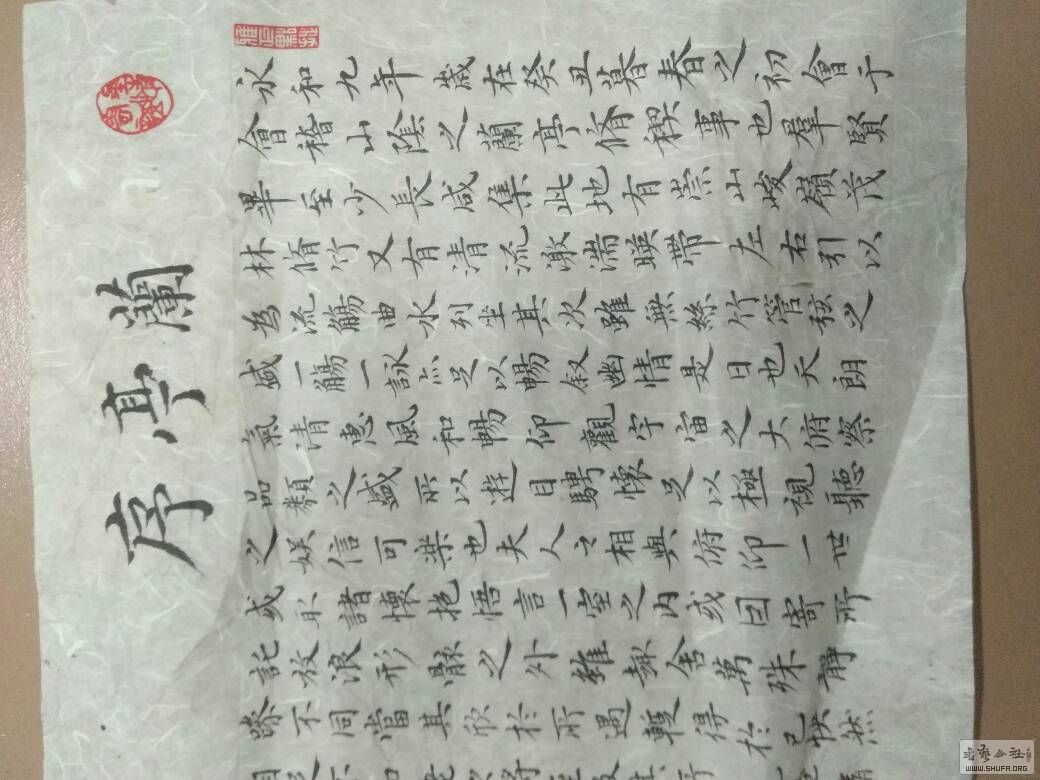 蘭亭序
永和九年歲在癸丑暮春之初會于
會稽山陰之蘭亭脩稧事也羣賢
畢至少長咸集此地有崇山峻嶺茂
林脩竹又有清流激湍暎帶左右引以
為流觴曲水列坐其次雖無絲竹管弦之
盛一觴一詠亦足以暢叙幽情是日也天朗
氣清惠風和暢仰觀宇宙之大俯察
品類之盛所以遊目騁懷足以極視聽
之娛信可樂也夫人之相與俯仰一世
或取諸懷抱悟言一室之內或因寄所
託放浪形骸之外雖趣舍萬殊靜
躁不同當其欣於所遇蹔得於己快然
WWW.SHUFA.ORG